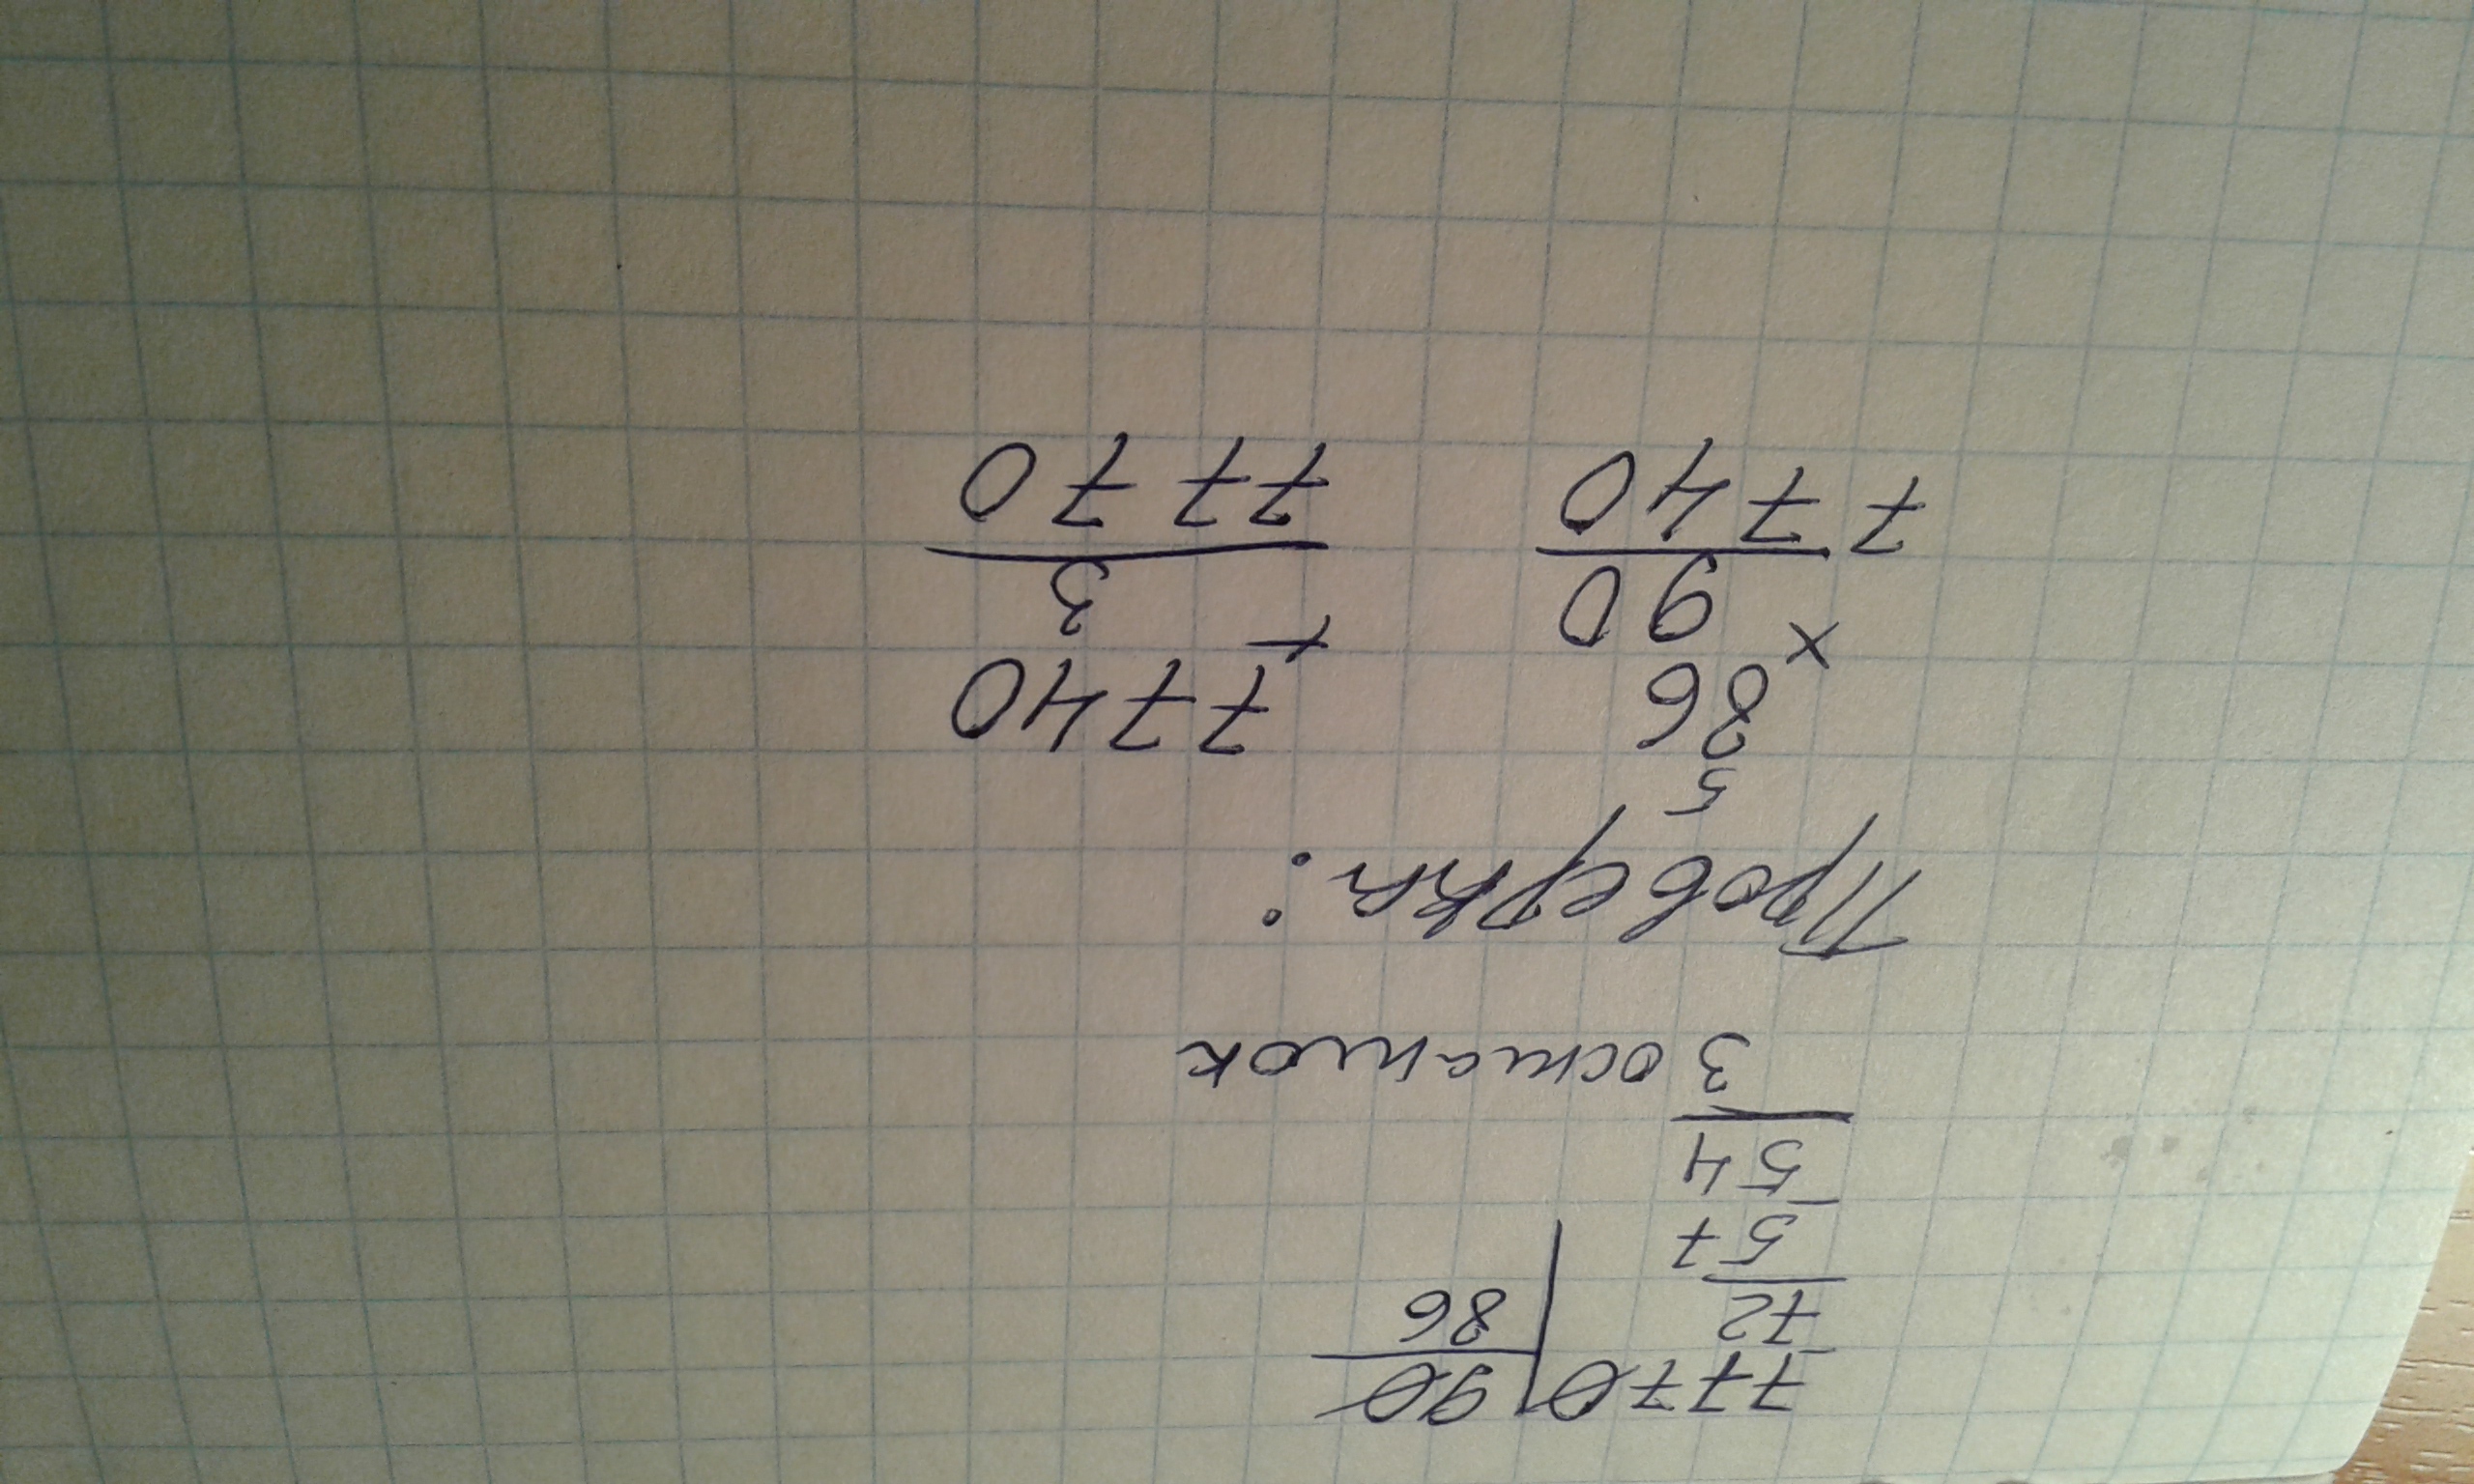 7770 | 90
- 72 | 86
57
- 54
3 остаток
Проверка:
5
86 7740
× 90 + 3
7740 7770